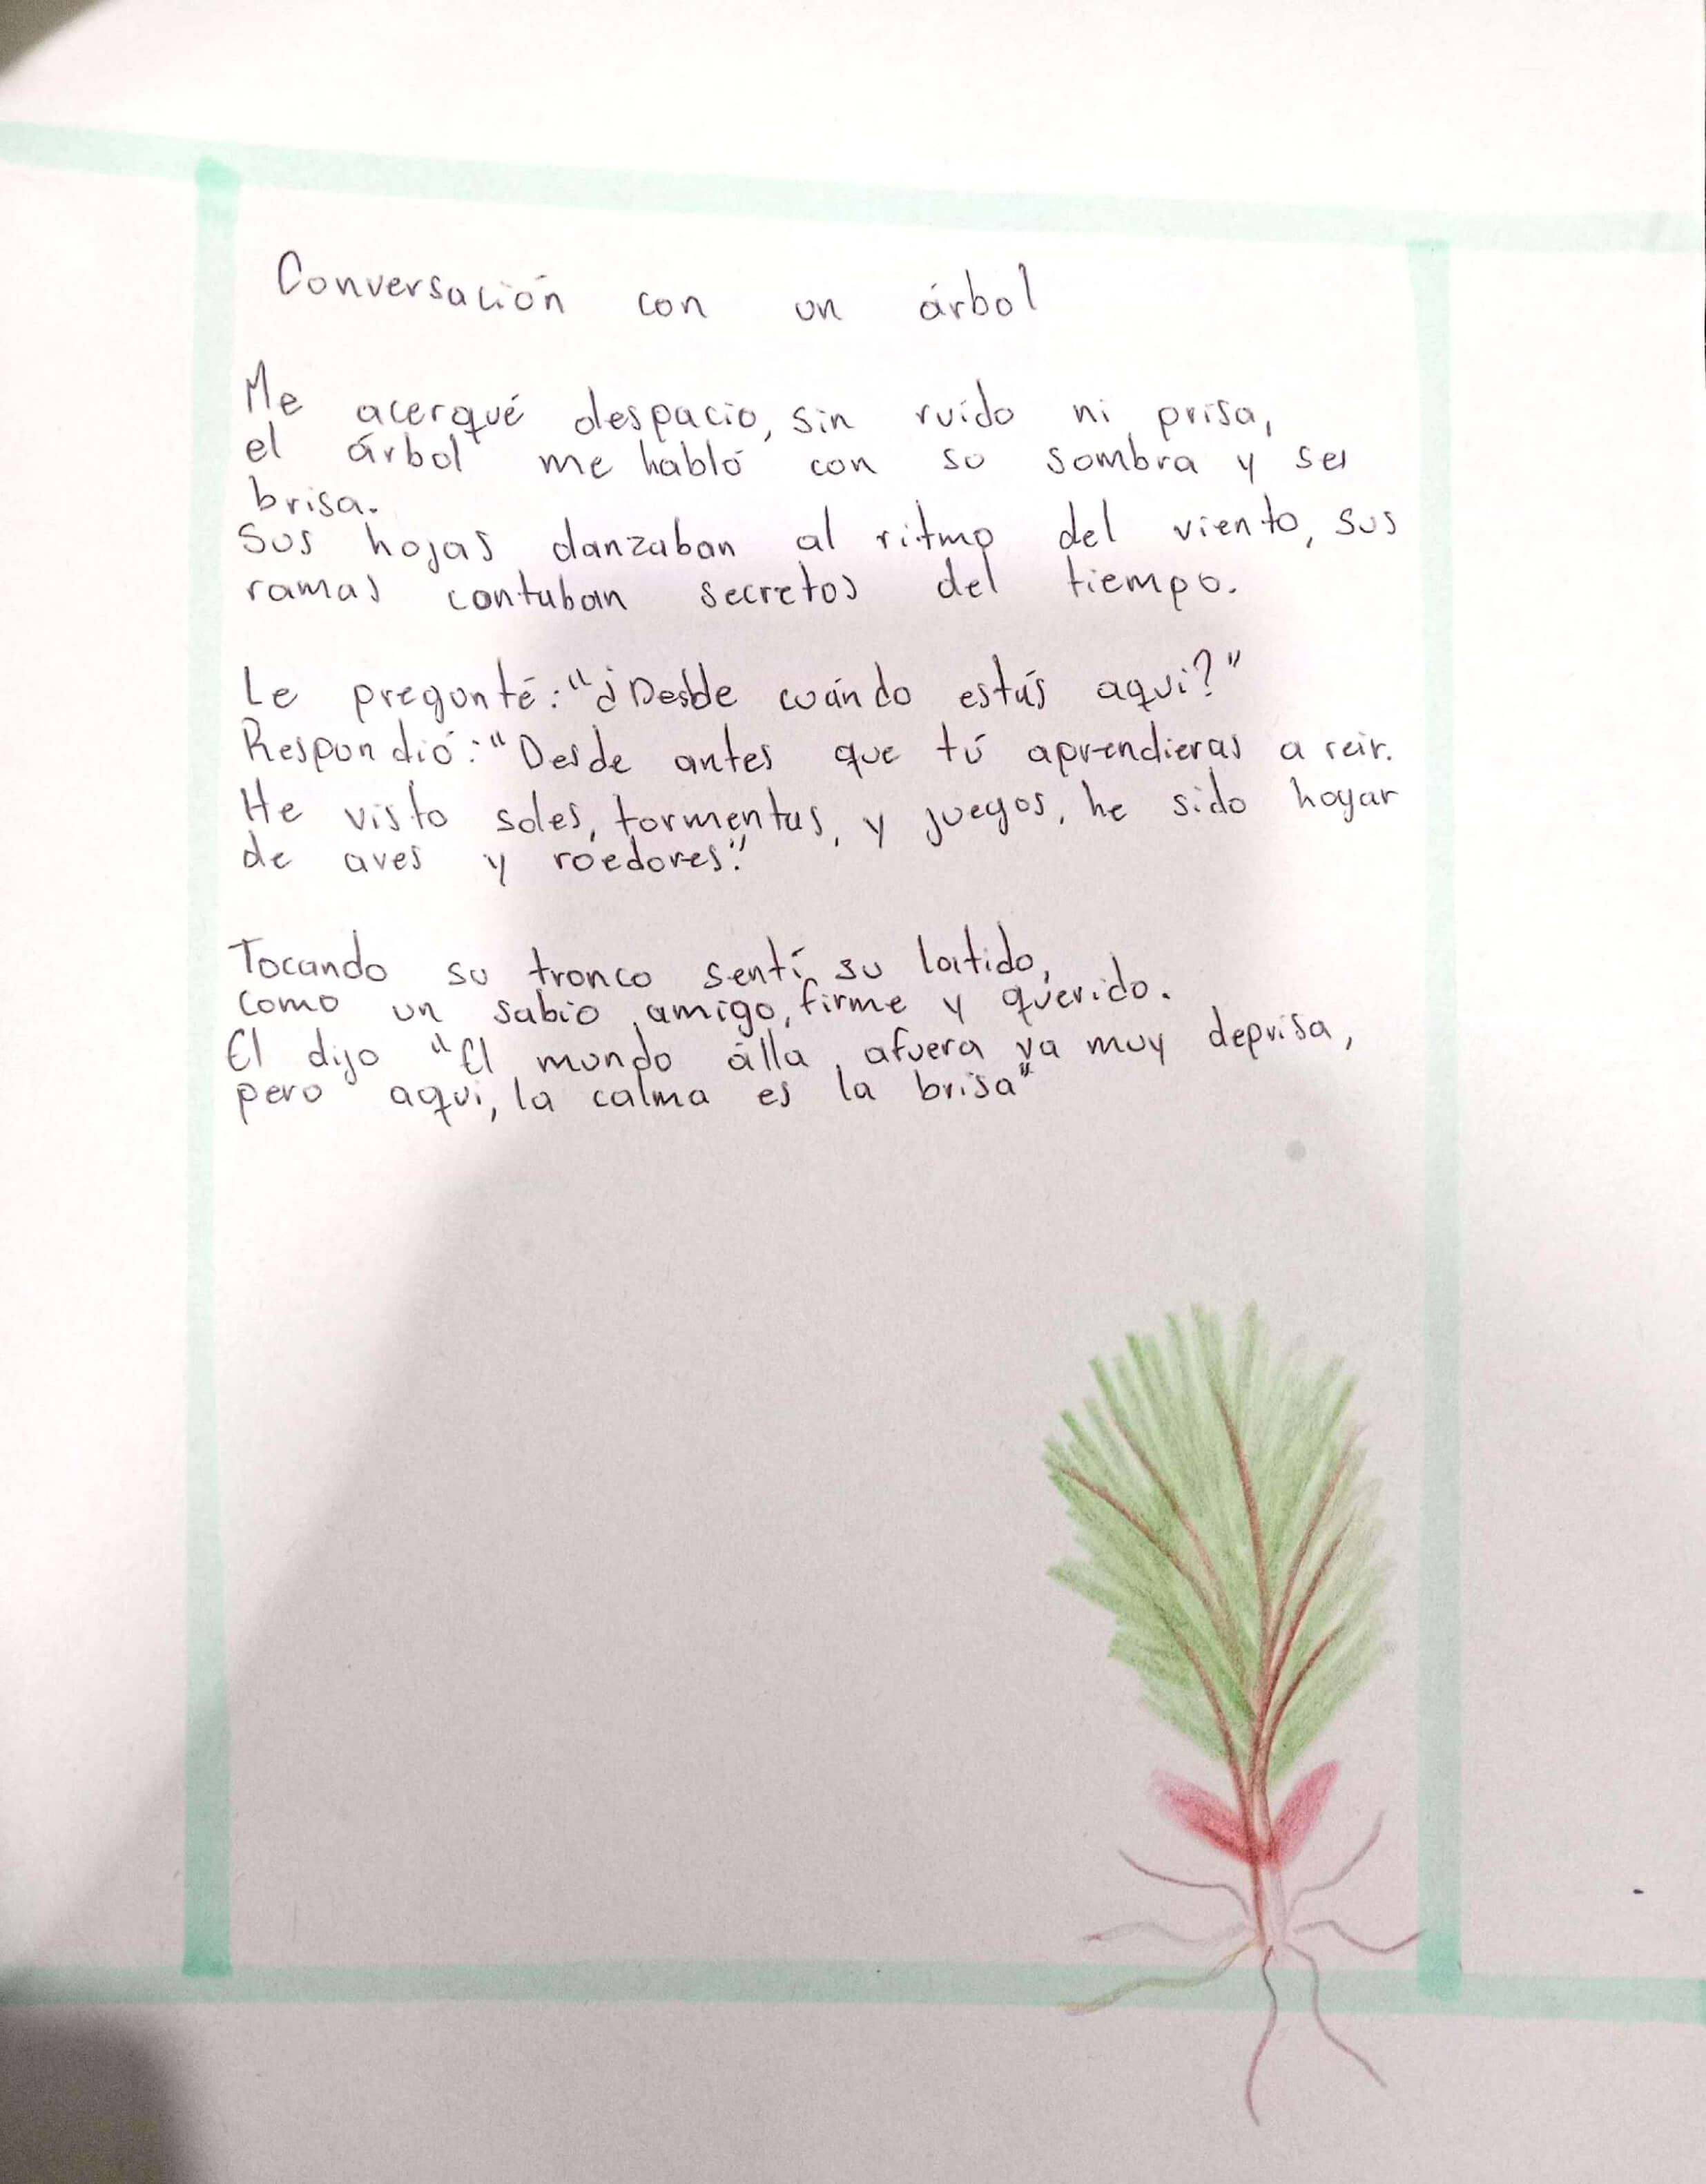 Conversación con un árbol
Me acerqué despacio, sin ruido ni prisa,
el árbol me habló con su sombra y su
brisa.
Sus hojas danzaban al ritmo del viento, sus
ramas contaban secretos del tiempo.
Le pregunté: "¿Desde cuándo estás aqui?"
Respondió: "Desde antes que tú aprendieras a reir.
He visto soles, tormentas, y juegos, he sido hogar
de aves y roedores".
Tocando su tronco sentí su latido,
como un sabio amigo, firme y querido.
El dijo "El mundo álla afuera va muy deprisa,
pero aqui, la calma es la brisa"